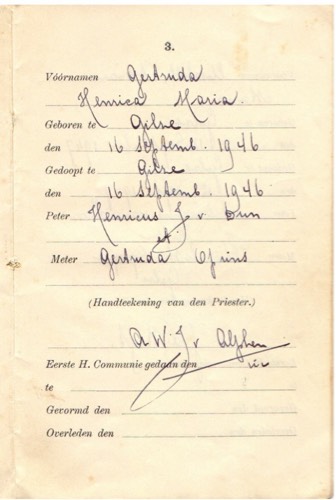 3.
Vóórnamen Gertruda
Henrica Maria.
Geboren te Gilze
den 16 Septemb. 1946
Gedoopt te Gilze
den 16 Septemb. 1946
Peter Henricus J v Dun
et
Meter Gertruda Oprins
(Handteekening van den Priester.)
A. W. J v Alphen
Eerste H. Communie gedaan den
te
Gevormd den
Overleden den